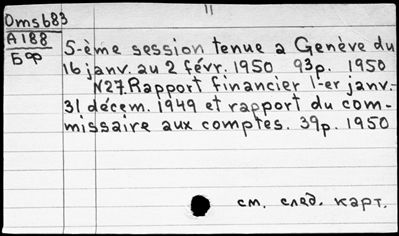 11
Oms683
A188
Бф
5-ème session tenue a Genève du
16 janv. au 2 févr. 1950 93p. 1950
N27. Rapport financier 1-er janv.-
31 décem. 1949 et rapport du com-
missaire aux comptes. 39p. 1950
см. след. карт.